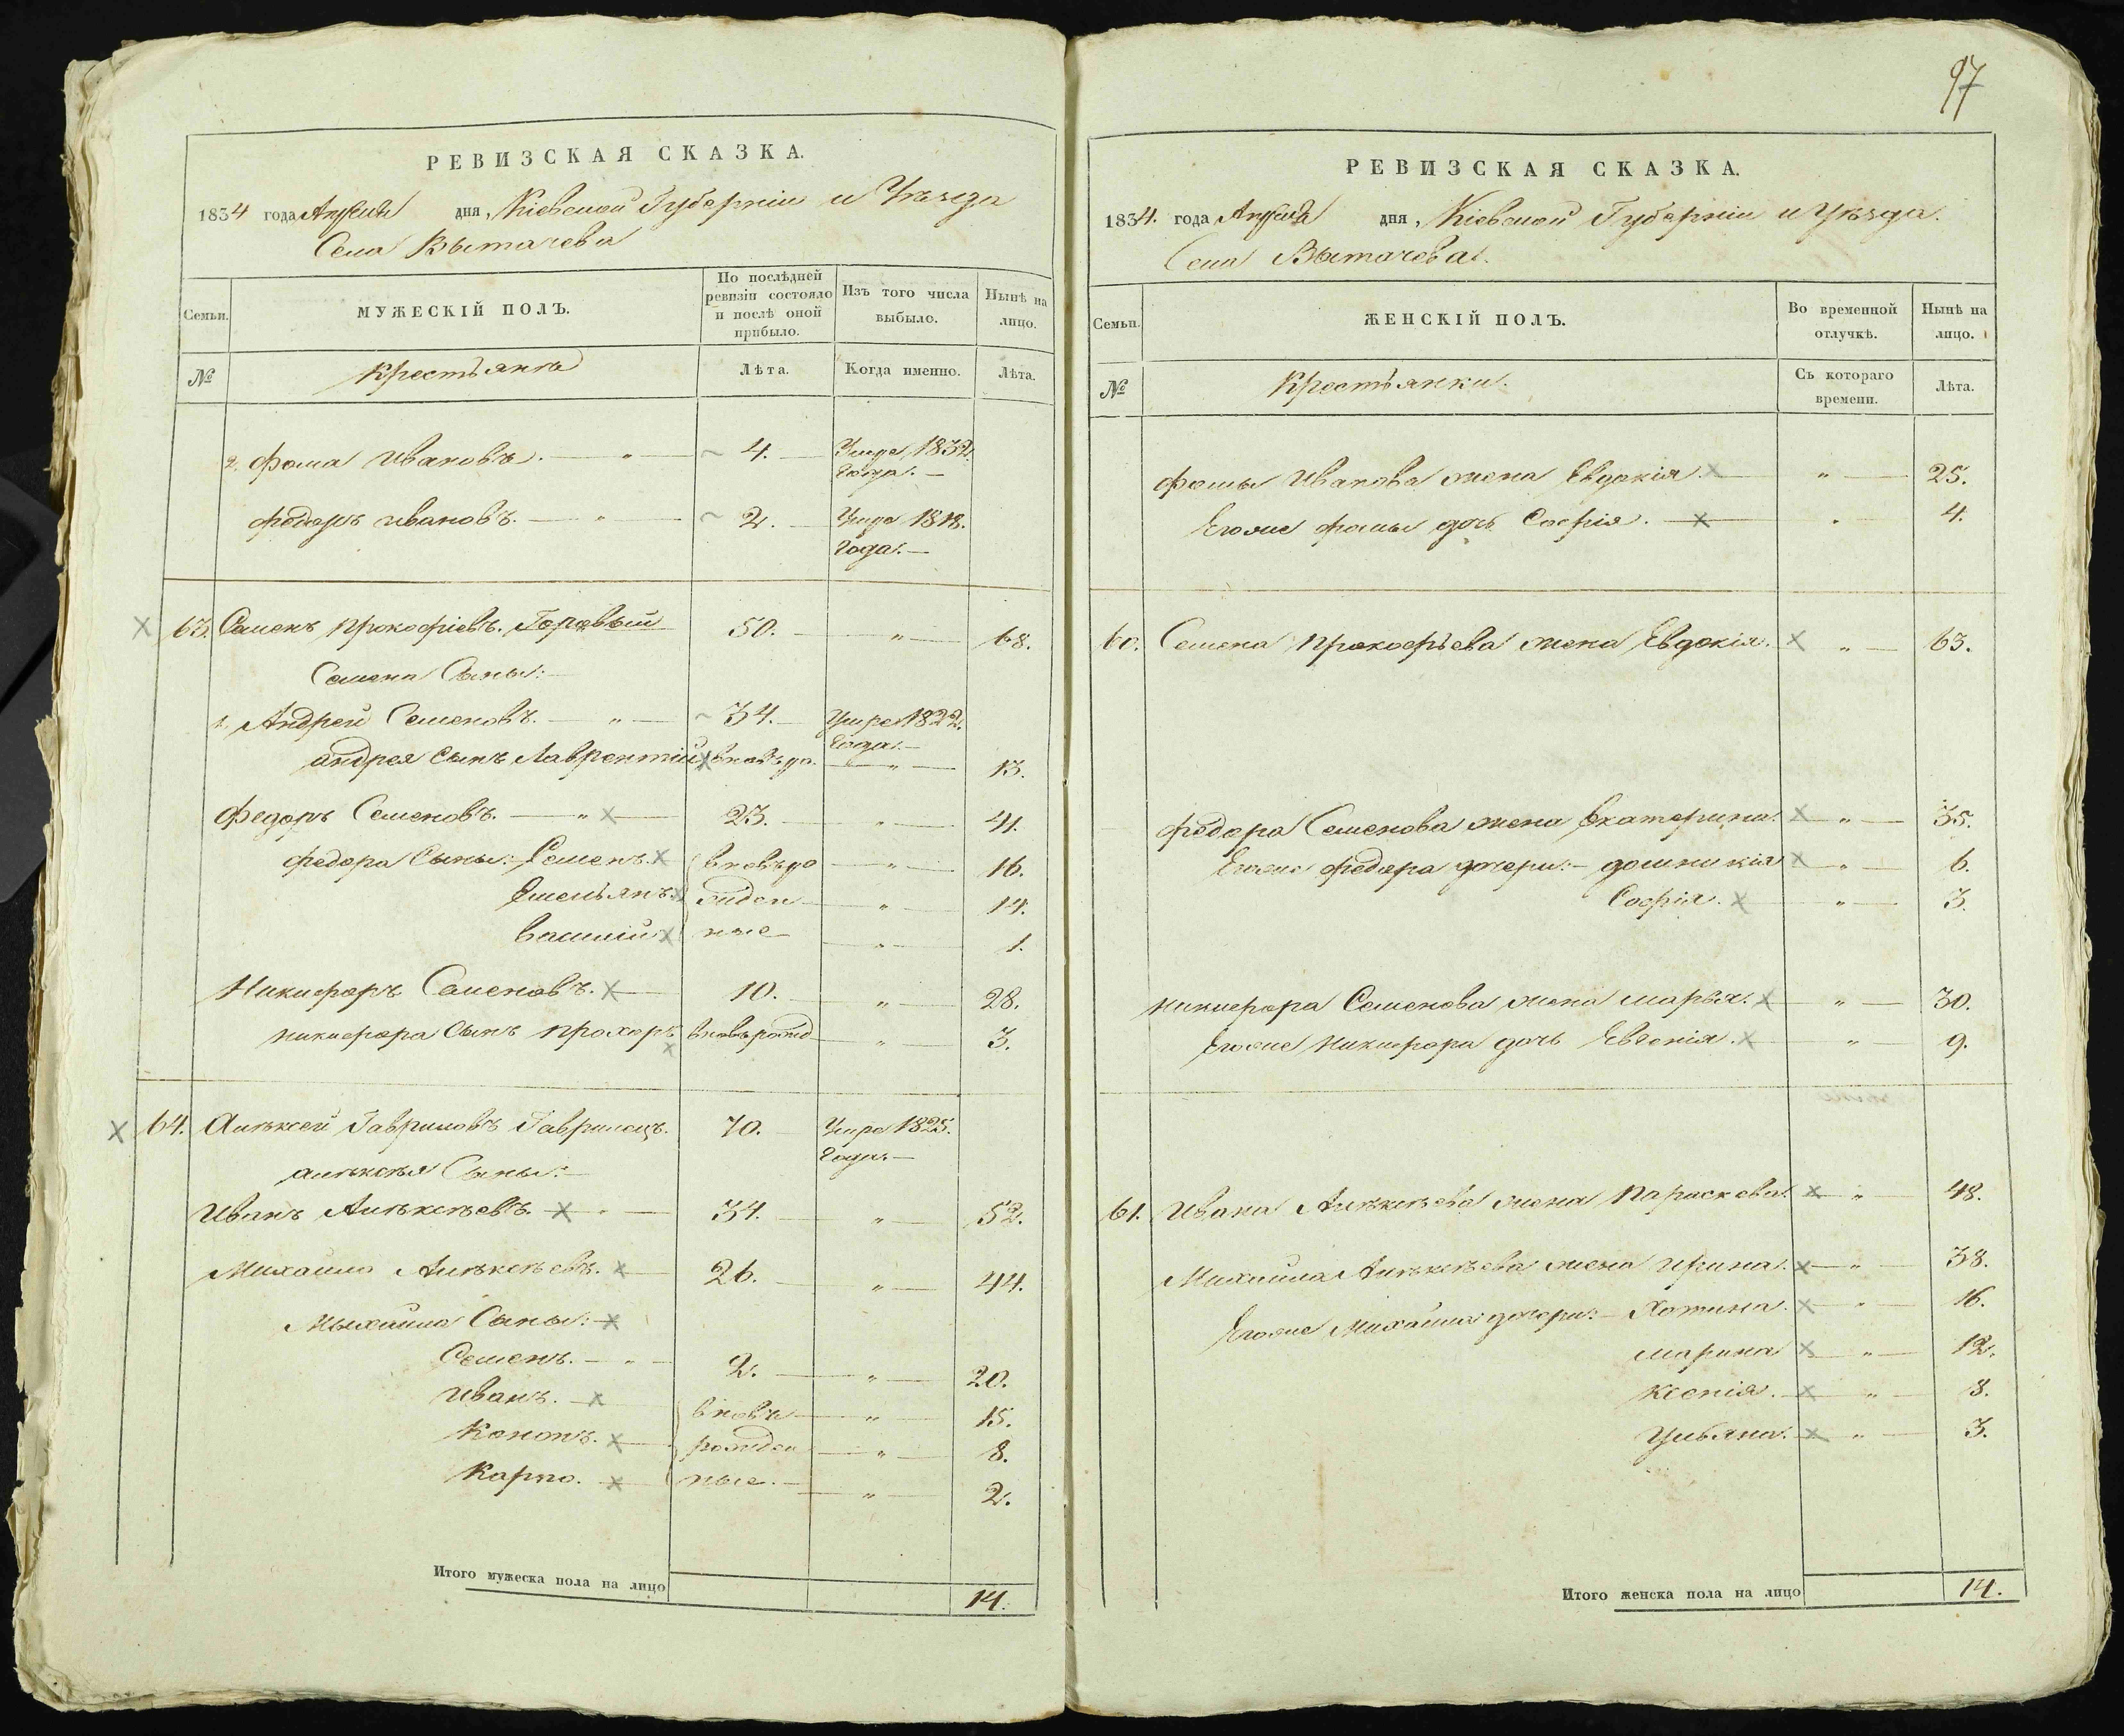 РЕВИЗСКАЯ СКАЗКА.
1834 года Апреля дня, Кіевской Губерніи и Уѣзда
Села Вытачева
Семьи. МУЖЕСКІЙ ПОЛЪ. По послѣдней ревизіи состояло и послѣ оной прибыло. Изъ того числа выбыло. Нынѣ на лицо.
№ Крестьянѣ Лѣта. Когда именно. Лѣта.
2. Фома Ивановъ. — " — 4. — Умре 1832.
Года. —
Федоръ Ивановъ. — " — 2. — Умре 1818.
Года. —
63. Семенъ Прокофіевъ. Горовый 50. — " — 68.
Семена Сыны: —
1. Андрей Семеновъ. — " — 34. — Умре 1822.
Года. —
Андрея Сынъ Лаврентій X — " — 13.
Федоръ Семеновъ. — " X — 23. — " — 41.
Федора Сыны: Семенъ. X вновь ро — " — 16.
Емельянъ. X жден — " — 14.
Василій X ные — " — 1.
Никифоръ Семеновъ. X — 10. — " — 28.
Никифора Сынъ Прохоръ. X вновь рожд — " — 3.
64. Алѣксей Гавриловъ Гаврилецъ. 70. — Умре 1825.
Года. —
Алѣксѣя Сыны: —
Иванъ Алѣксѣевъ. X — 34. — " — 52.
Михайло Алѣксѣевъ. X — 26. — " — 44.
Мыхайла Сыны: X
Семенъ. — " — 2. — " — 20.
Иванъ. — X вновь — " — 15.
Кононъ. X рожден — " — 8.
Карпо. X ные. — " — 2.
Итого мужеска пола на лицо 14.
97
РЕВИЗСКАЯ СКАЗКА.
1834. года Апреля дня, Кіевской Губерніи и Уѣзда.
Села Вытачева.
Семьи. ЖЕНСКІЙ ПОЛЪ. Во временной отлучкѣ. Нынѣ на лицо.
№ Крестьянки. Съ котораго времени. Лѣта.
Фомы Иванова жена Евдокія. X — " — 25.
Егоже Фомы дочь Софія. — X — " — 4.
60. Семена Прокофьева жена Евдокія. X " — 63.
Федора Семенова жена Екатерина. X — " — 35.
Егоже Федора дочери: — Домникія X — " — 6.
Софія. X — " — 3.
Никифора Семенова жена Марья. X — " — 30.
Егоже Никифора дочь Евгенія. X — " — 9.
61. Ивана Алѣксѣева жена Параскева. X " — 48.
Михайла Алѣксѣева жена Ирина. X — " — 38.
Егоже Михайла дочери: — Хотина. X — " — 16.
Марина X — " — 12.
Ксенія. X — " — 8.
Ульяна. X — " — 3.
Итого женска пола на лицо 14.